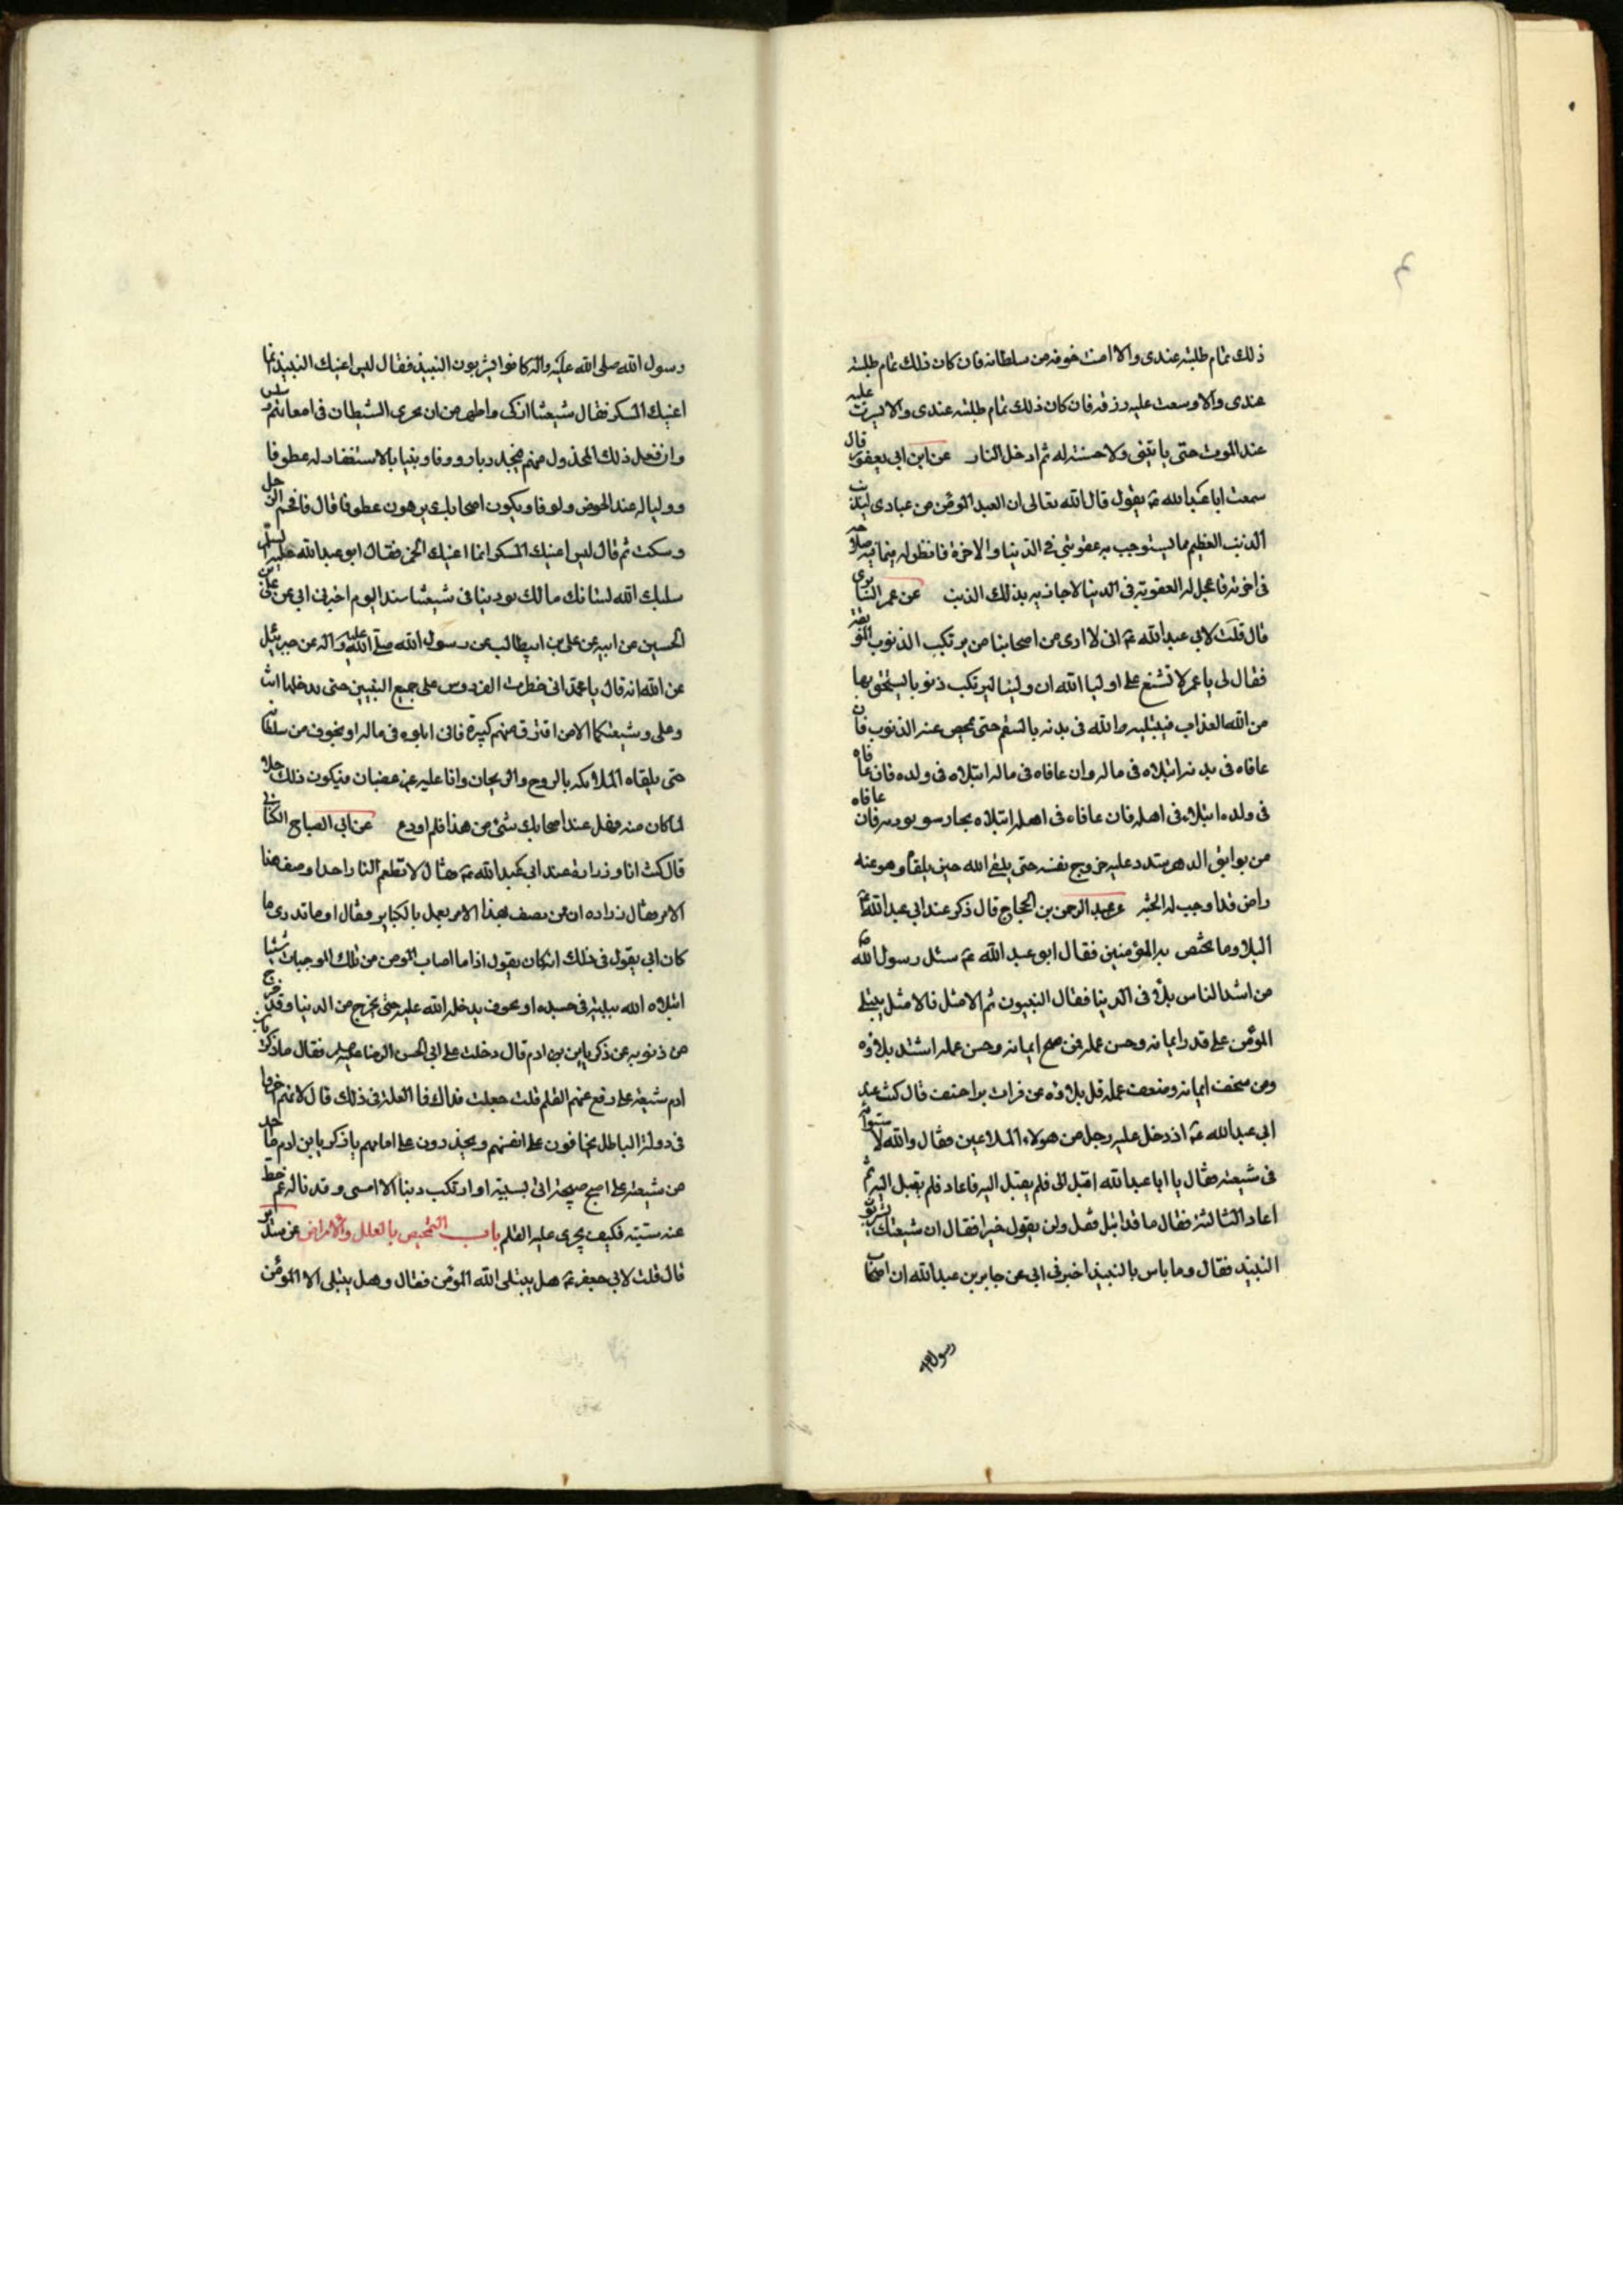 ذلك تمام طلبته عندى والا امنت خوفه من سلطانه فان كان ذلك تمام طلبته
عندى والا وسعت عليه رزقه فان كان ذلك تمام طلبته عندى والا يسرت عليه
عند الموت حتى ياتينى ولا حسنة له ثم ادخله النار عن ابن ابى يعفور قال
سمعت ابا عبد الله ع يقول قال الله تعالى ان العبد المؤمن من عبادى ليذنب
الذنب العظيم مما يستوجب به عقوبتى فى الدنيا والاخرة فانظر له فيما فيه صلاحه
فى اخرته فاعجل له العقوبة فى الدنيا لاجازيه بذلك الذنب عن عمر السابرى
قال قلت لابى عبد الله ع انى لا ارى من اصحابنا من يرتكب الذنوب الموبقة
فقال لى يا عمر لا تشنع على اوليا الله ان ولينا ليرتكب ذنوبا يستحق بها
من الله العذاب فيبتليه الله فى بدنه بالسقم حتى يمحص عنه الذنوب فان
عافاه فى بدنه ابتلاه فى ماله وان عافاه فى ماله ابتلاه فى ولده فان عافاه
فى ولده ابتلاه فى اهله فان عافاه فى اهله ابتلاه بجار سو يوديه فان عافاه
من بوايق الدهر شدد عليه خروج نفسه حتى يلقى الله حين يلقاه وهو عنه
راض قد اوجب له الجنة عن عبد الرحمن بن الحجاج قال ذكر عند ابى عبد الله ع
البلا وما يختص به المؤمنين فقال ابو عبد الله ع سئل رسول الله ص
من اشد الناس بلاء فى الدينا فقال النبيون ثم الامثل فالامثل يبتلى
المؤمن على قدر ايمانه وحسن عمله فمن صح ايمانه وحسن عمله اشتد بلاؤه
ومن سخف ايمانه وضعف عمله قل بلاؤه عن فرات بن احنف قال كنت عند
ابى عبد الله ع اذ دخل عليه رجل من هولاء الملاعين فقال والله لاسوانه
فى شيعته فقال يا ابا عبد الله اقبل الى فلم يقبل اليه فاعاد فلم يقبل اليه ثم
اعاد الثالثة فقال ها قد اقبل فقل ولن يقول خيرا فقال ان شيعتك يشربون
النبيذ فقال وما باس بالنبيذ اخبرنى ابى عن جابر بن عبد الله ان اصحاب
رسول الله
رسول الله صلى الله عليه واله كانوا يشربون النبيذ فقال ليس اعنيك النبيذ انما
اعنيك المسكر فقال شيعتنا ازكى واطهر من ان يجرى الشيطان فى امعائهم
وان فعل ذلك المخذول منهم فيجد ربا رووفا ونبيا بالاستغفار له عطوفا
ووليا له عند الحوض ولوفا ويكون اصحابك عطوفا قال فافحم الرجل
وسكت ثم قال ليس اعنيك المسكر انما اعنيك الخمر فقال ابو عبد الله
سلبك الله لسانك مالك توديننا فى شيعتنا منذ اليوم اخبرنى ابى عن على بن
الحسين عن ابيه عن على بن ابيطالب عن رسول الله صلى الله عليه واله عن جبرئيل
عن الله انه قال يا محمد انى حظرت الفردوس على جميع النبيين حتى تدخلها انت
وعلى وشيعتكما الا من اقترف منهم كبيرة فانى ابلوه فى ماله او بخوف من سلطانه
حتى يلقاه الملائكه بالروح والريحان وانا عليه غير غضبان فيكون ذلك
لما كان منه فهل عند اصحابك شئ من هذا فلم اودع عن ابى الصباح الكنانى
قال كنت انا وزرارة عند ابى عبد الله ع فقال لا تطعم النار احدا وصف هذا
الامر فقال زراره ان ممن يصف هذا الامر يعمل بالكباير فقال او ما تدرى ما
كان ابى يقول فى ذلك انه كان يقول اذا ما اصاب المومن من تلك الموجبات شيئا
ابتلاه الله ببلية فى جسده او بخوف يدخله الله عليه حتى يخرج من الدنيا وقد خرج
من ذنوبه عن ذكريا بن ادم قال دخلت على ابى الحسن الرضا فقال يا ذكريا بن
ادم شيعة على رفع عنهم القلم قلت جعلت فداك فما العلة فى ذلك قال لانهم اخروا
فى دولة الباطل يخافون على انفسهم ويحذرون على امامهم يا ذكريا بن ادم ما احد
من شيعة على اصبح صبيحة اتى بسيئة او ارتكب ذنبا الا امسى وقد ناله غم حط
عنه سيئته فكيف يجرى عليه القلم باب التمحيص بالعلل والامراض عن سدير
قال قلت لابى جعفر ع هل يبتلى الله المؤمن فقال وهل يبتلى الا المؤمن